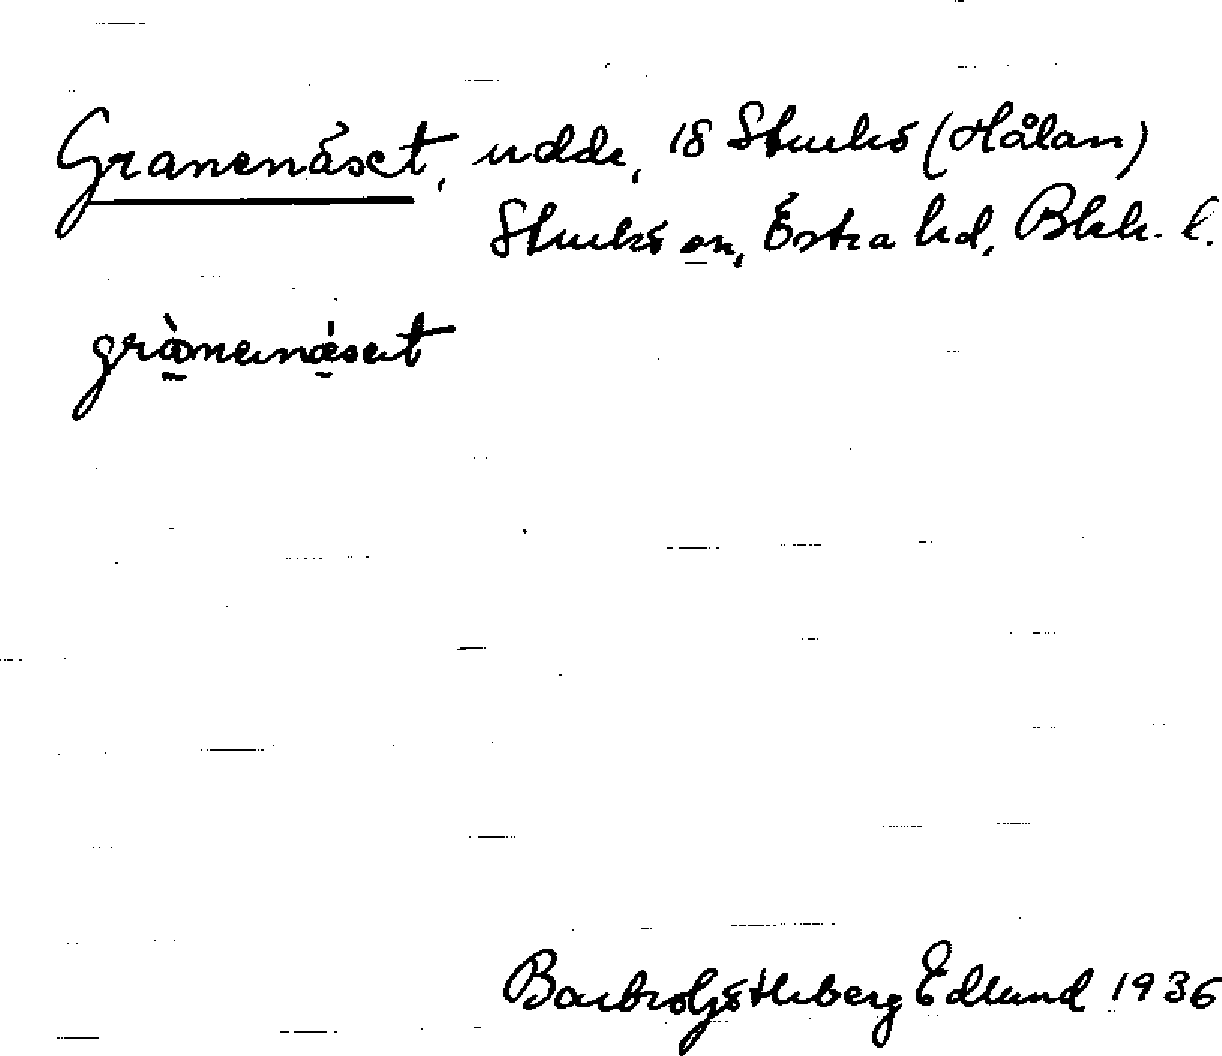 Granenäset, udde, 18 Sturkö (Hålan)
Sturkö sn, Östra hd, Blek. l.
grànenä́set
Barbro Götherberg Edlund 1936